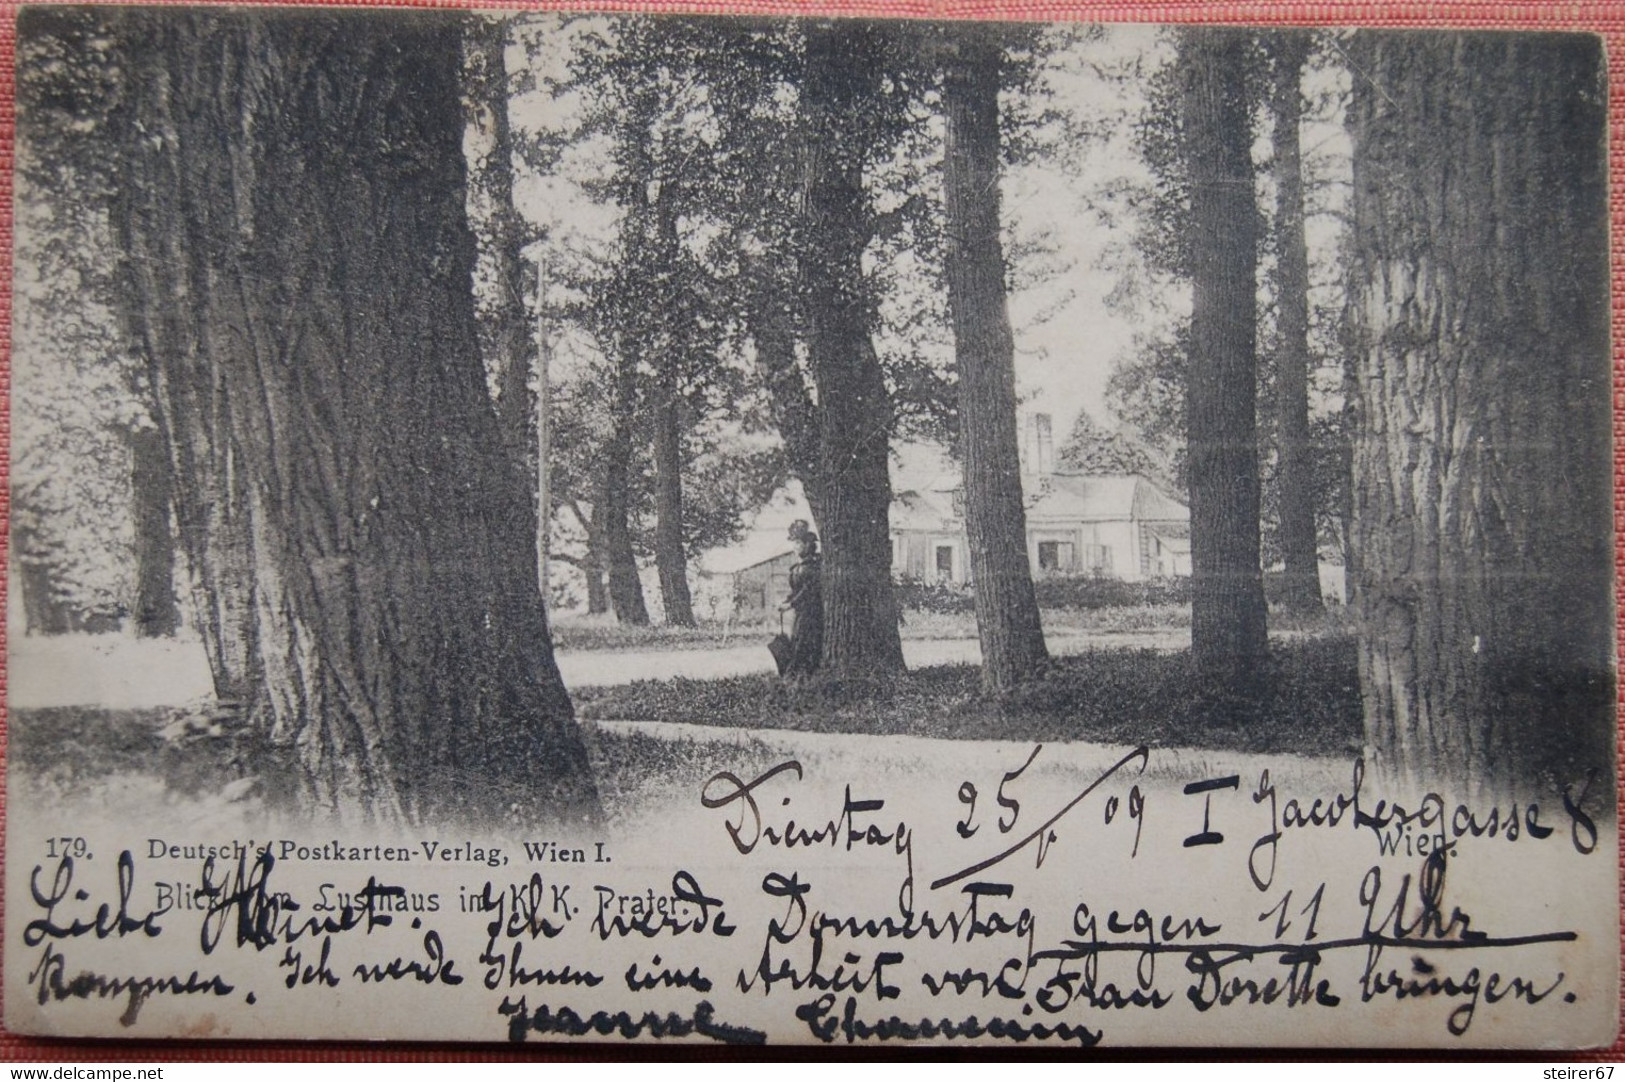 Dienstag 25/V 09 I Jacobergasse 8
Wien.
179. Deutsch's Postkarten-Verlag, Wien I.
Blick vom Lusthaus im K. K. Prater.
Liebe Ich werde Donnerstag gegen 11 Uhr
kommen. Ich werde Ihnen eine Arbeit von Frau Dorette bringen.
Jeanne
delcampe.net
steirer67